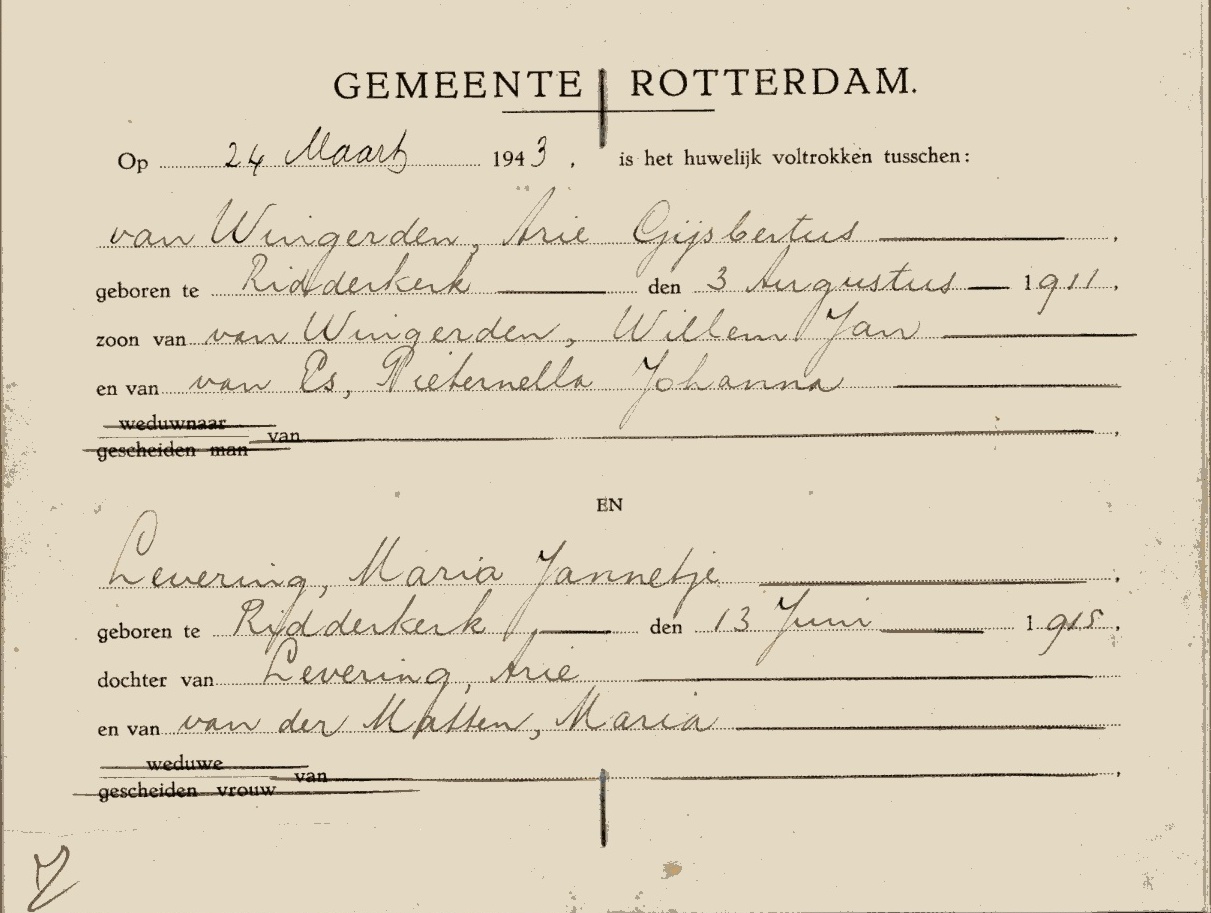 GEMEENTE ROTTERDAM.
Op 24 Maart 1943, is het huwelijk voltrokken tusschen:
van Wingerden, Arie Gijsbertus,
geboren te Ridderkerk den 3 Augustus 1911,
zoon van van Wingerden, Willem Jan
en van van Es, Pieternella Johanna
weduwnaar
van,
gescheiden man
EN
Levering, Maria Jannetje,
geboren te Ridderkerk, den 13 Juni 1915,
dochter van Levering, Arie
en van van der Matten, Maria
weduwe
van,
gescheiden vrouw